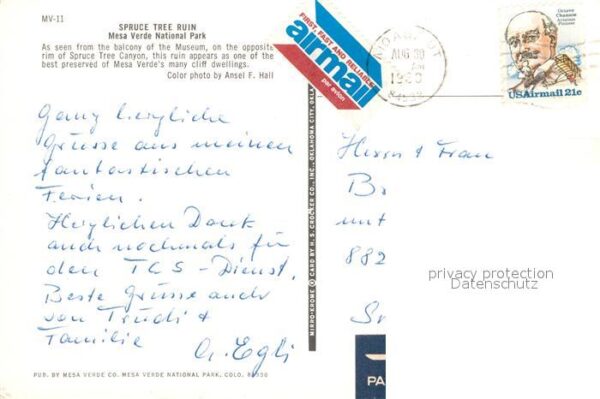 MV-11
SPRUCE TREE RUIN
Mesa Verde National Park
As seen from the balcony of the Museum, on the opposite
rim of Spruce Tree Canyon, this ruin appears as one of the
best preserved of Mesa Verde's many cliff dwellings.
Color photo by Ansel F. Hall
FIRST, FAST AND RELIABLE
airmail
par avion
AUG 30
PM
Octave
Chanute
Aviation
Pioneer
USAirmail 21c
Ganz herzliche
Grüsse aus meinen
fantastischen
Ferien.
Herzlichen Dank
auch nochmals für
den TCS-Dienst.
Beste Grüsse auch
von Trudi +
Familie
A. Egli
MIRRO-KROME ® CARD BY H. S. CROCKER CO. INC., OKLAHOMA CITY, OKLA
Herrn + Frau
Br
unt
882
privacy protection
Datenschutz
PA
PUB. BY MESA VERDE CO. MESA VERDE NATIONAL PARK, COLO. 81330